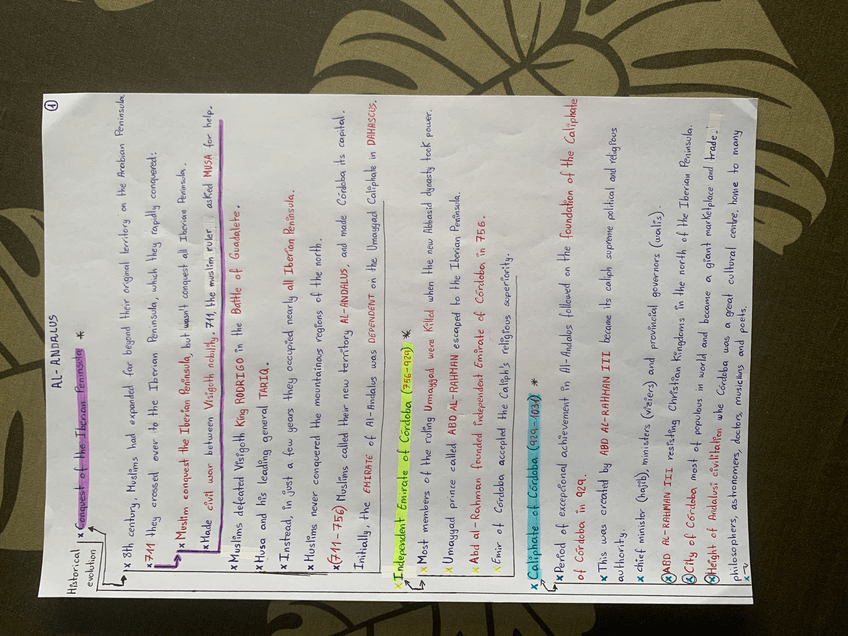 ①
AL-ANDALUS
Historical evolution
x Conquest of the Iberian Peninsula *
x 8th century, Muslims had expanded far beyond their original territory on the Arabian Peninsula.
x 711 they crossed over to the Iberian Peninsula, which they rapidly conquered:
x Muslim conquest the Iberian Peninsula, but wasn't conquest all Iberian Peninsula.
x Made civil war between Visigoth nobility. 711, the muslim ruler, asked MUSA for help.
x Muslims defeated Visigoth King RODRIGO in the Battle of Guadalete.
x Musa and his leading general TARIQ.
x Instead, in just a few years they occupied nearly all Iberian Peninsula.
x Muslims never conquered the mountainous regions of the north.
x (711-756) Muslims called their new territory AL-ANDALUS, and made Córdoba its capital.
Initially, the EMIRATE of Al-Andalus was DEPENDENT on the Umayyad Caliphate in DAMASCUS.
x Independent Emirate of Córdoba (756-929) *
x Most members of the ruling Umayyad were killed when the new Abbasid dynasty took power.
x Umayyad prince called ABD AL-RAHMAN escaped to the Iberian Peninsula.
x Abd al-Rahman founded independent Emirate of Córdoba in 756.
x Emir of Córdoba accepted the Caliph's religious superiority.
x Caliphate of Córdoba (929-1031) *
x Period of exceptional achievement in Al-Andalus followed on the foundation of the Caliphate
of Córdoba in 929.
x This was created by ABD AL-RAHMAN III became its caliph supreme political and religious
authority.
x chief minister (hajib), ministers (viziers) and provincial governors (walis).
x ABD AL-RAHMAN III resisting Christian Kingdoms in the north of the Iberian Peninsula.
x City of Córdoba, most of populous in world and became a giant marketplace and trade.
x Height of Andalusi civilitation whe Córdoba was a great cultural centre, home to many
philosophers, astronomers, doctors, musicians and poets.
x